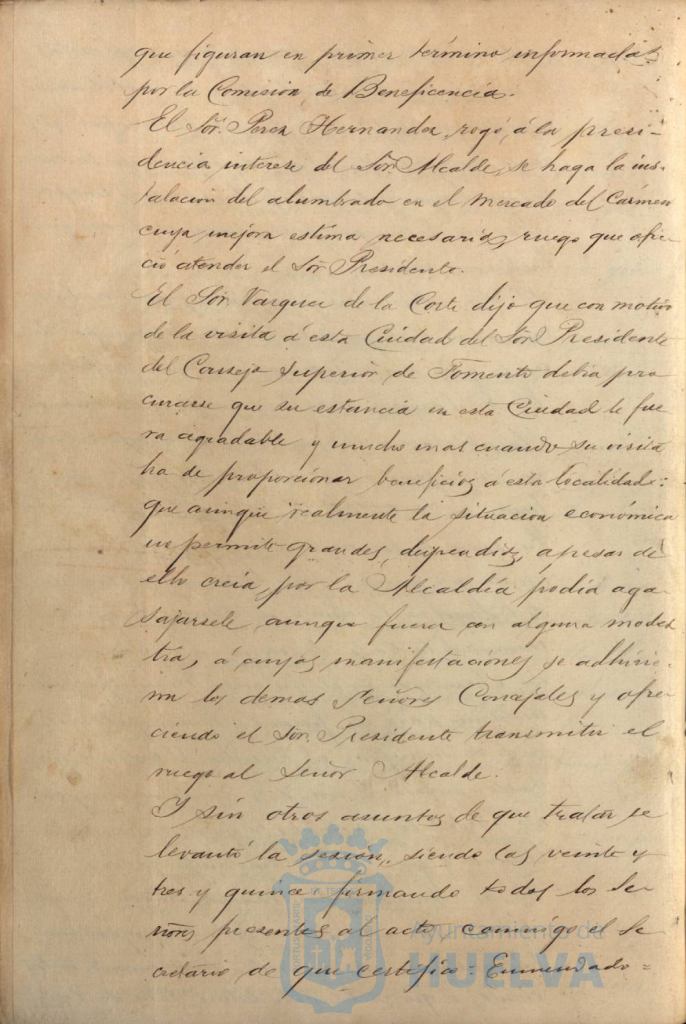 que figuran en primer término informadas
por la Comisión de Beneficencia.
El Sor. Perez Hernandez, rogó, á la presi-
dencia interese del Sor. Alcalde, se haga la ins-
talacion del alumbrado en el Mercado del Carmen
cuya mejora estima necesaria, ruego que ofre-
ció atender el Sor. Presidente.
El Sor. Vazquez de la Corte dijo que con motivo
de la visita á esta Ciudad del Sor. Presidente
del Consejo Superior de Fomento debia pro
curarse que su estancia en esta Ciudad le fue
ra agradable y mucho mas cuando su visita
ha de proporcionar beneficios á esta localidad:
que aunque realmente la situacion económica
no permite grandes dispendios, apesar de
ello creia, por la Alcaldía podia aga
sajarsele aunque fuera con alguna modes
tia, á cuyas manifestaciones se adhirie-
ron los demas Señores Concejales y ofre
ciendo el Sor. Presidente transmitir el
ruego al Señor Alcalde.
Y sin otros asuntos de que tratar se
levantó la sesión, siendo las veinte y
tres y quince firmando todos los Se
ñores presentes al acto, conmigo el Se
cretario de que certifico = Enmendado =
Ayuntamiento de
HUELVA